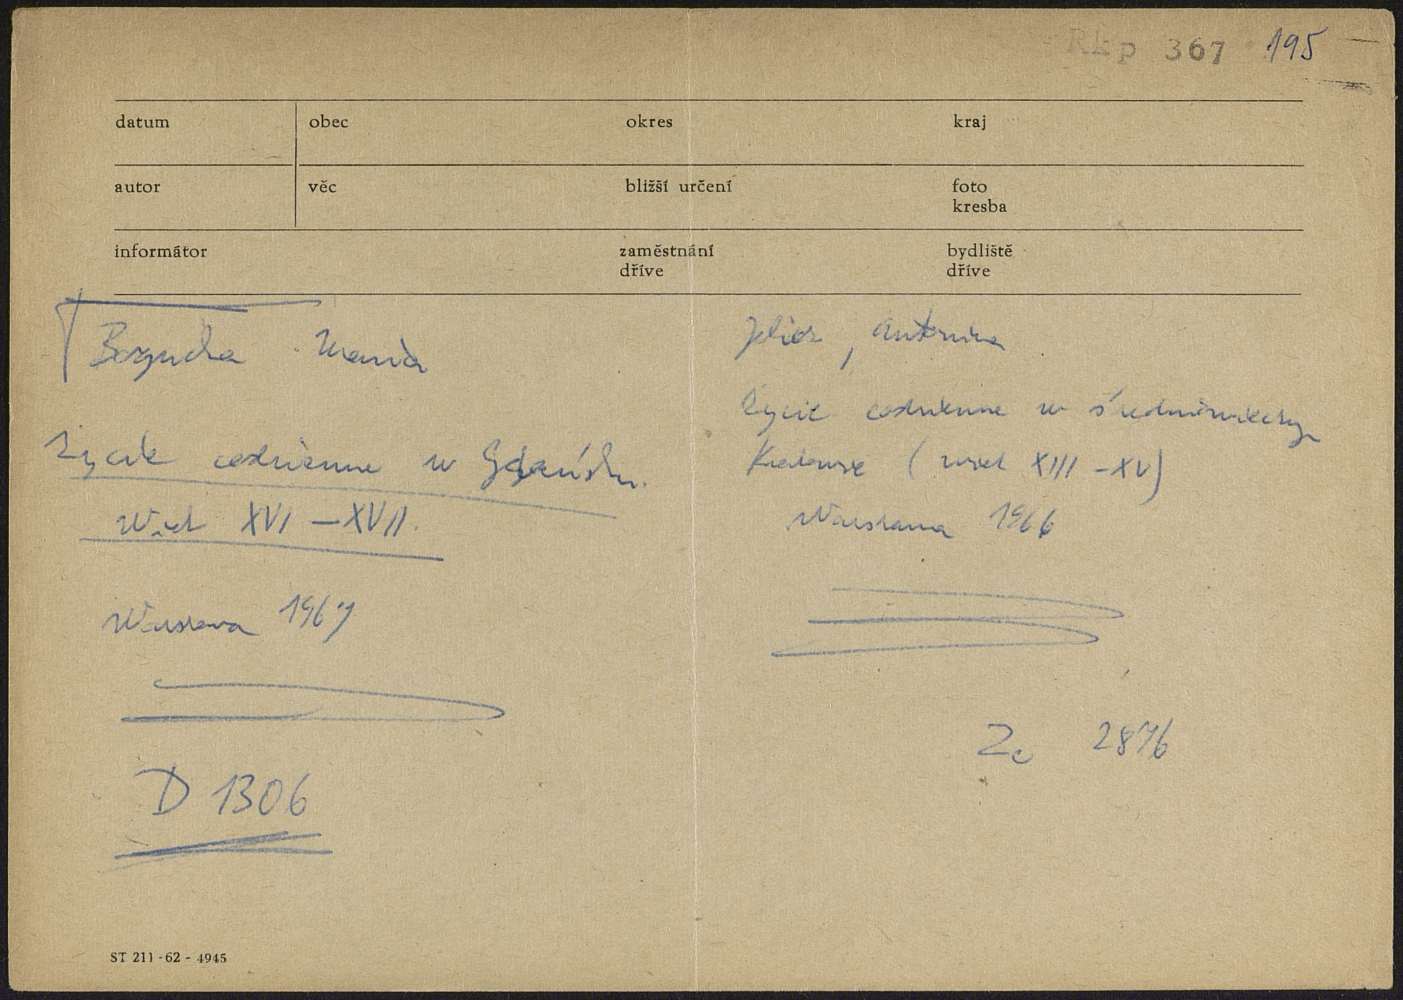 Rkp 367 195
datum obec okres kraj
autor věc bližší určení foto
kresba
informátor zaměstnání bydliště
dříve dříve
Bogucka Maria
Życie codzienne w Gdańsku.
Wiek XVI – XVII.
Warszawa 1967
D 1306
Jelicz, Antonina
Życie codzienne w średniowiecznym
Krakowie (wiek XIII – XV)
Warszawa 1966
Zc 2876
ST 211 - 62 - 4945